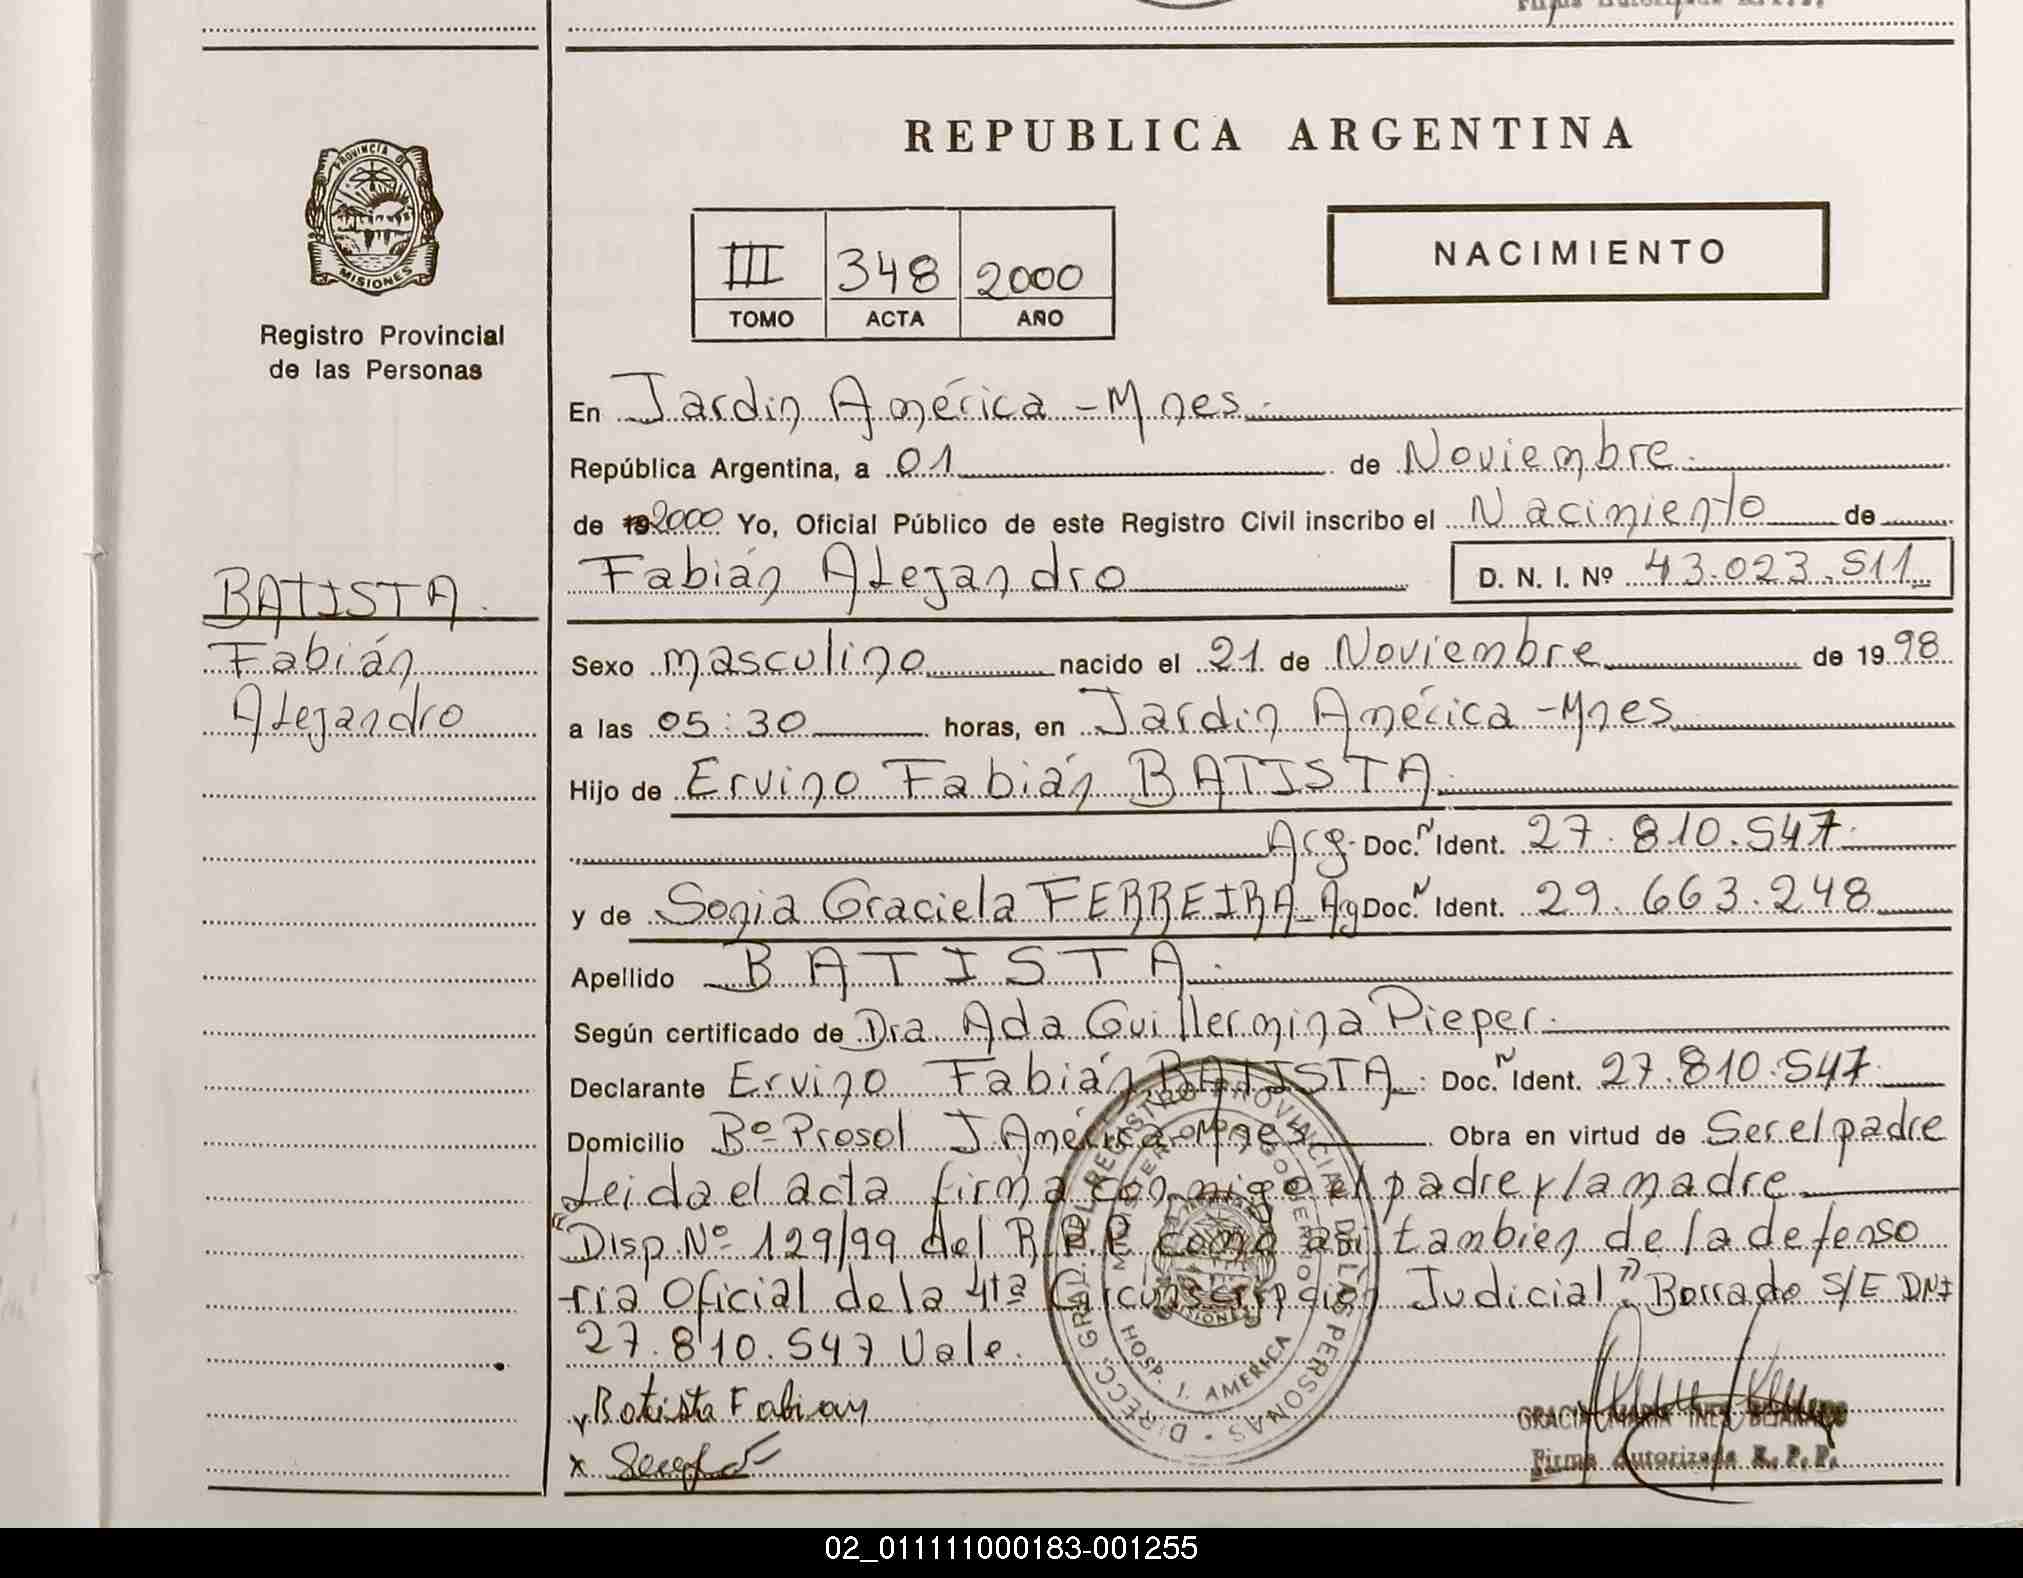 REPUBLICA ARGENTINA
PROVINCIA DE
MISIONES
Registro Provincial
de las Personas
III 348 2000
TOMO ACTA AÑO
NACIMIENTO
En Jardin América - Mnes.
República Argentina, a 01 de Noviembre.
de 19 2000 Yo, Oficial Público de este Registro Civil inscribo el Nacimiento de
Fabián Alejandro D. N. I. Nº 43.023.511
BATISTA.
Fabián
Alejandro
Sexo masculino nacido el 21 de Noviembre de 19 98
a las 05:30 horas, en Jardin América - Mnes
Hijo de Ervino Fabián BATISTA.
Arg. Doc. N Ident. 27.810.547.
y de Sonia Graciela FERREIRA Ag Doc. N Ident. 29.663.248
Apellido BATISTA.
Según certificado de Dra. Ada Guillermina Pieper.
Declarante Ervino Fabián BATISTA. Doc. N Ident. 27.810.547.
Domicilio Bº Prosol J. América Mnes Obra en virtud de Ser el padre
Leida el acta firma conmigo el padre y la madre
"Disp. Nº 129/99 del R.P.P. como asi tambien de la defenso
ria Oficial de la 4ta Circunscripción Judicial" Borrado S/E DNI
27.810.547 Vale.
Batista Fabian
x
DIRECC. GRAL. DEL REGISTRO PROVINCIAL DE LAS PERSONAS
MINISTERIO DE GOBIERNO
MISIONES
HOSP. J. AMERICA
GRACIA MARIA INES BEJARANO
Firma Autorizada R. P. P.
02_011111000183-001255